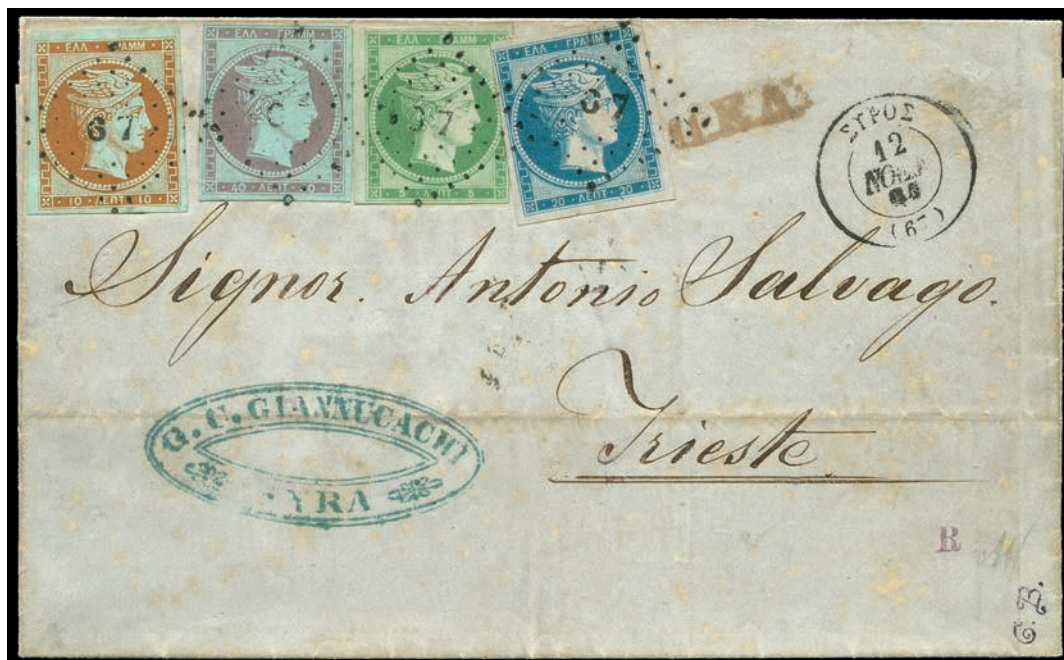 ΕΛΛ ΓΡΑΜΜ
67
10 ΛΕΠΤ 10
ΕΛΛ ΓΡΑΜΜ
40 ΛΕΠΤ 40
ΕΛΛ ΓΡΑΜΜ
67
5 ΛΕΠΤ 5
ΕΛΛ ΓΡΑΜΜ
67
20 ΛΕΠΤ 20
ΣΥΡΟΣ
12
ΝΟΕΜ
(67)
Signor. Antonio Salvago.
Trieste
G. C. GIANNUCACHI
SYRA
R